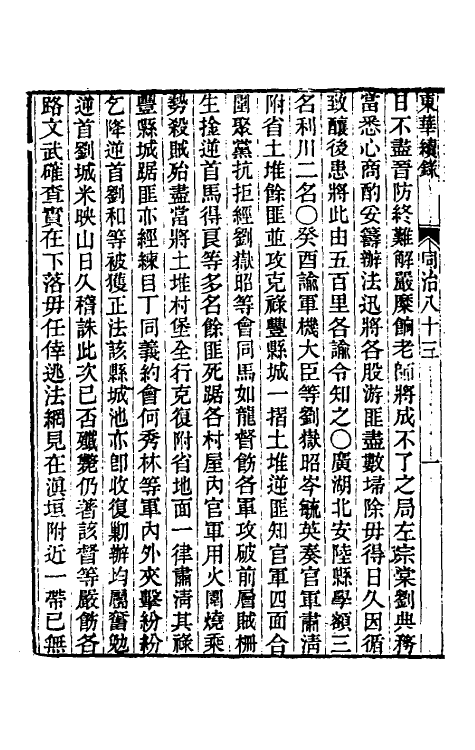 東華續錄　同治八十三　一
日不盡晉防終難解嚴糜餉老師將成不了之局左宗棠劉典務
當悉心商酌妥籌辦法迅將各股游匪盡數埽除毋得日久因循
致釀後患將此由五百里各諭令知之〇廣湖北安陸縣學額三
名利川二名〇癸酉諭軍機大臣等劉嶽昭岑毓英奏官軍肅淸
附省土堆餘匪並攻克祿豐縣城一摺土堆逆匪知官軍四面合
圍聚黨抗拒經劉嶽昭等會同馬如龍督飭各軍攻破前層賊柵
生擒逆首馬得良等多名餘匪死踞各村屋內官軍用火圍燒乘
勢殺賊殆盡當將土堆村堡全行克復附省地面一律肅淸其祿
豐縣城踞匪亦經練目丁同義約會何秀林等軍內外夾擊紛紛
乞降逆首劉和等被獲正法該縣城池亦卽收復勦辦均屬奮勉
逆首劉城米映山日久稽誅此次已否殲斃仍著該督等嚴飭各
路文武確查實在下落毋任倖逃法網見在滇垣附近一帶已無